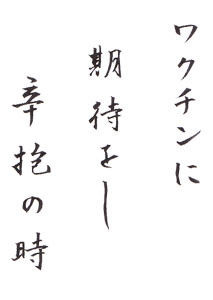 ワクチンに
期待をし
辛抱の時